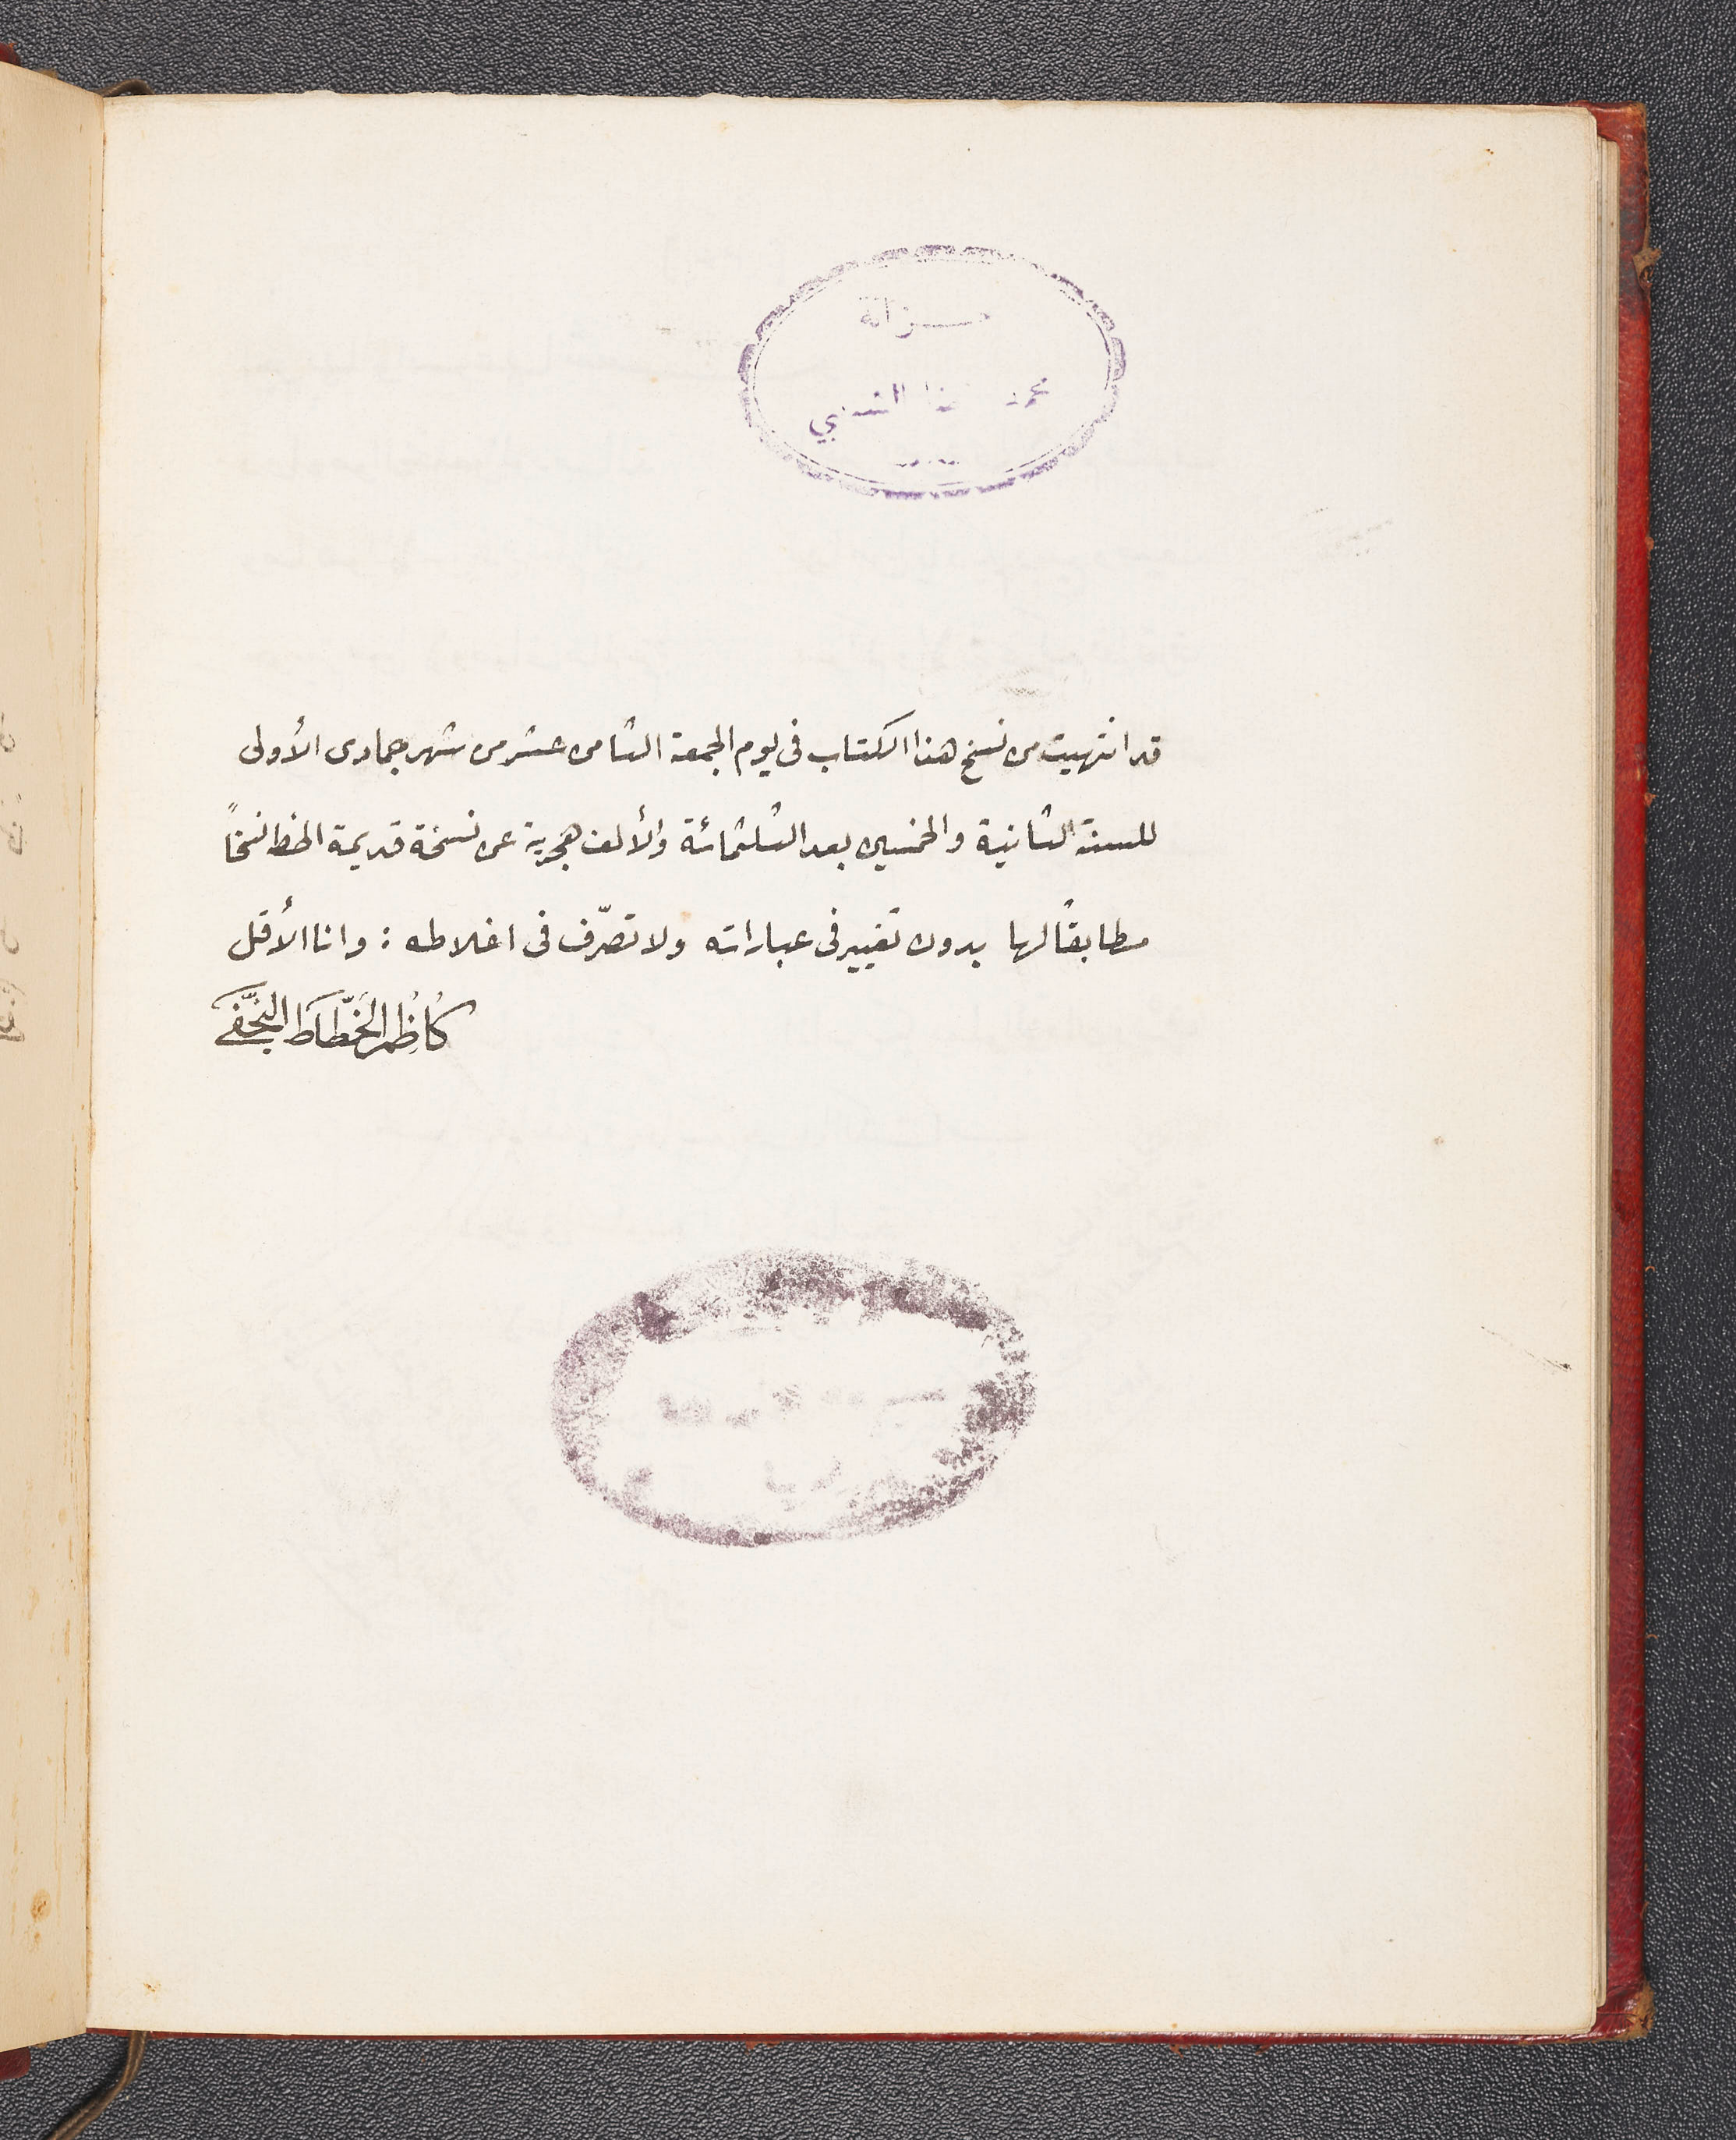 خزانة
محمد رضا الشبيبي
قد انتهيت من نسخ هذا الكتاب في يوم الجمعة الثامن عشر من شهر جمادى الأولى
للسنة الثانية والخمسين بعد الثلثمائة والألف هجرية عن نسخة قديمة الخط نسخاً
مطابقاً لها بدون تغيير في عباراته ولا تصرّف في اغلاطه : وانا الأقل
كاظم الخطّاط النّجفي